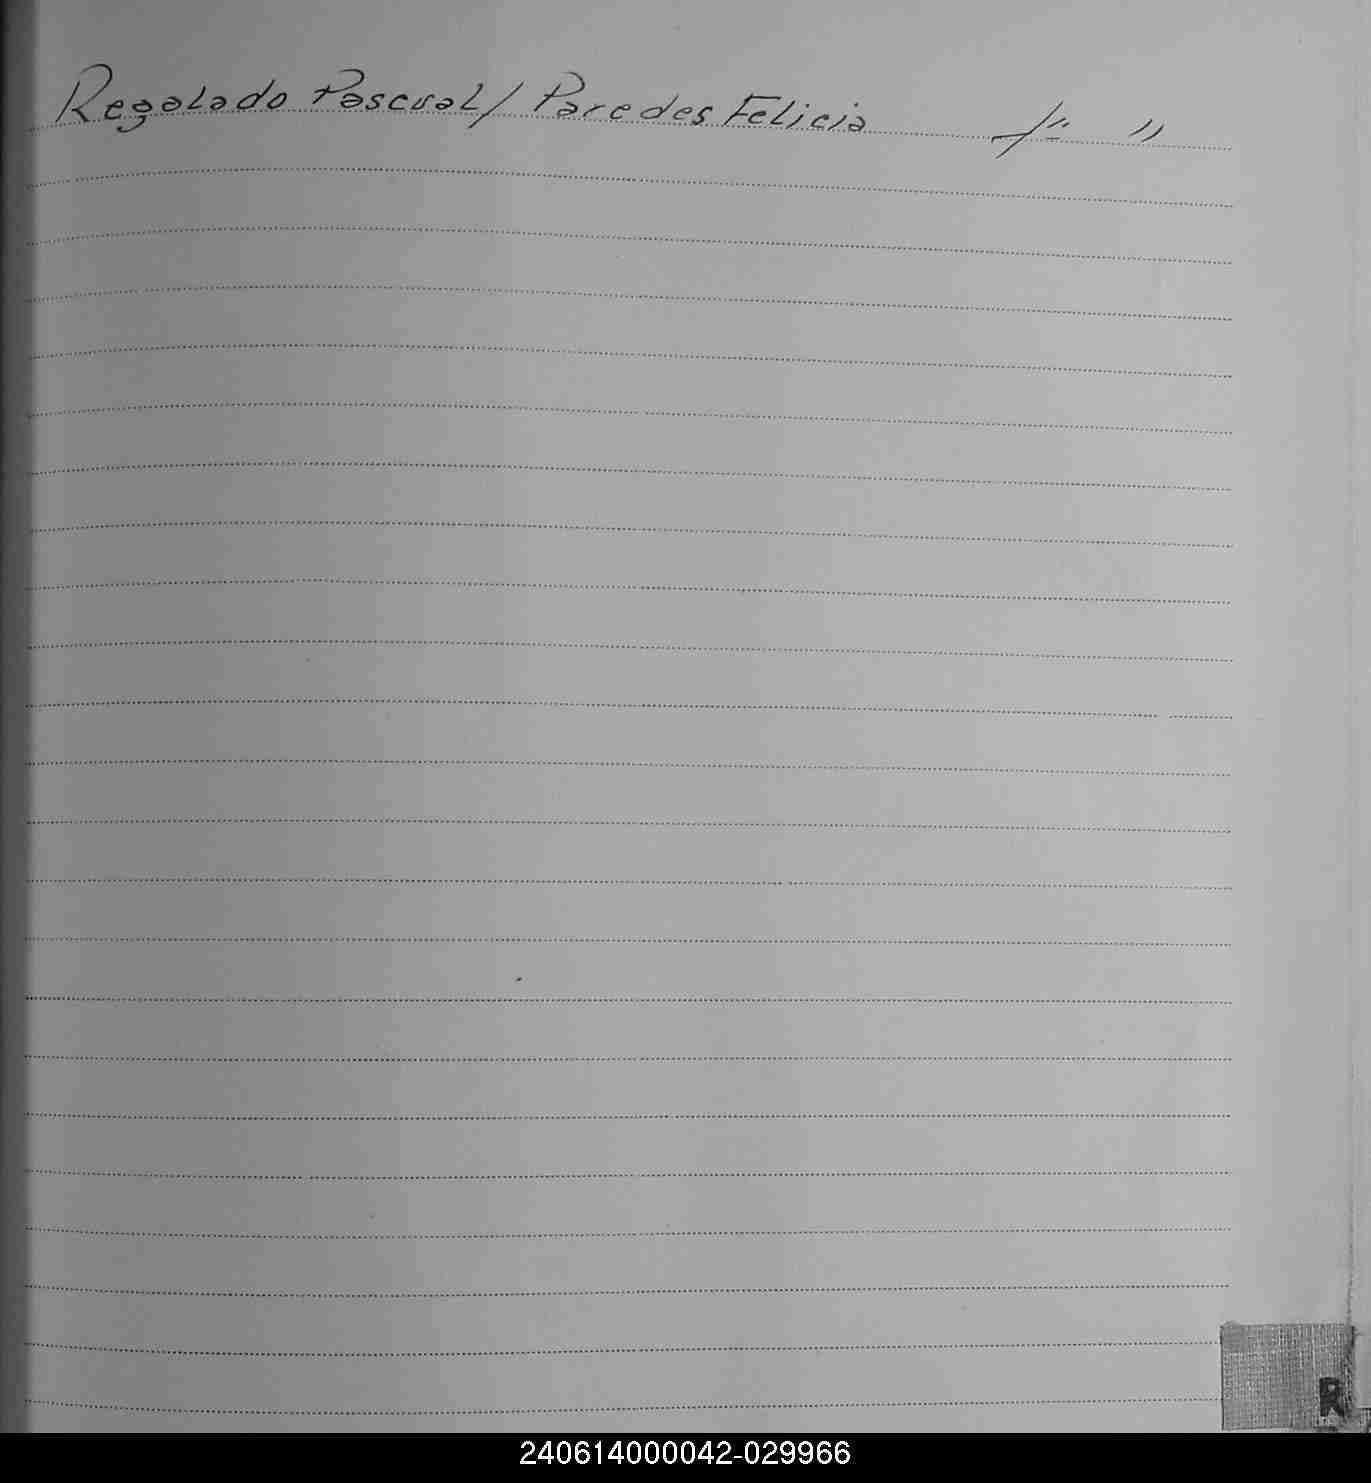 Regalado Pascual / Paredes Felicia f" "
R
240614000042-029966